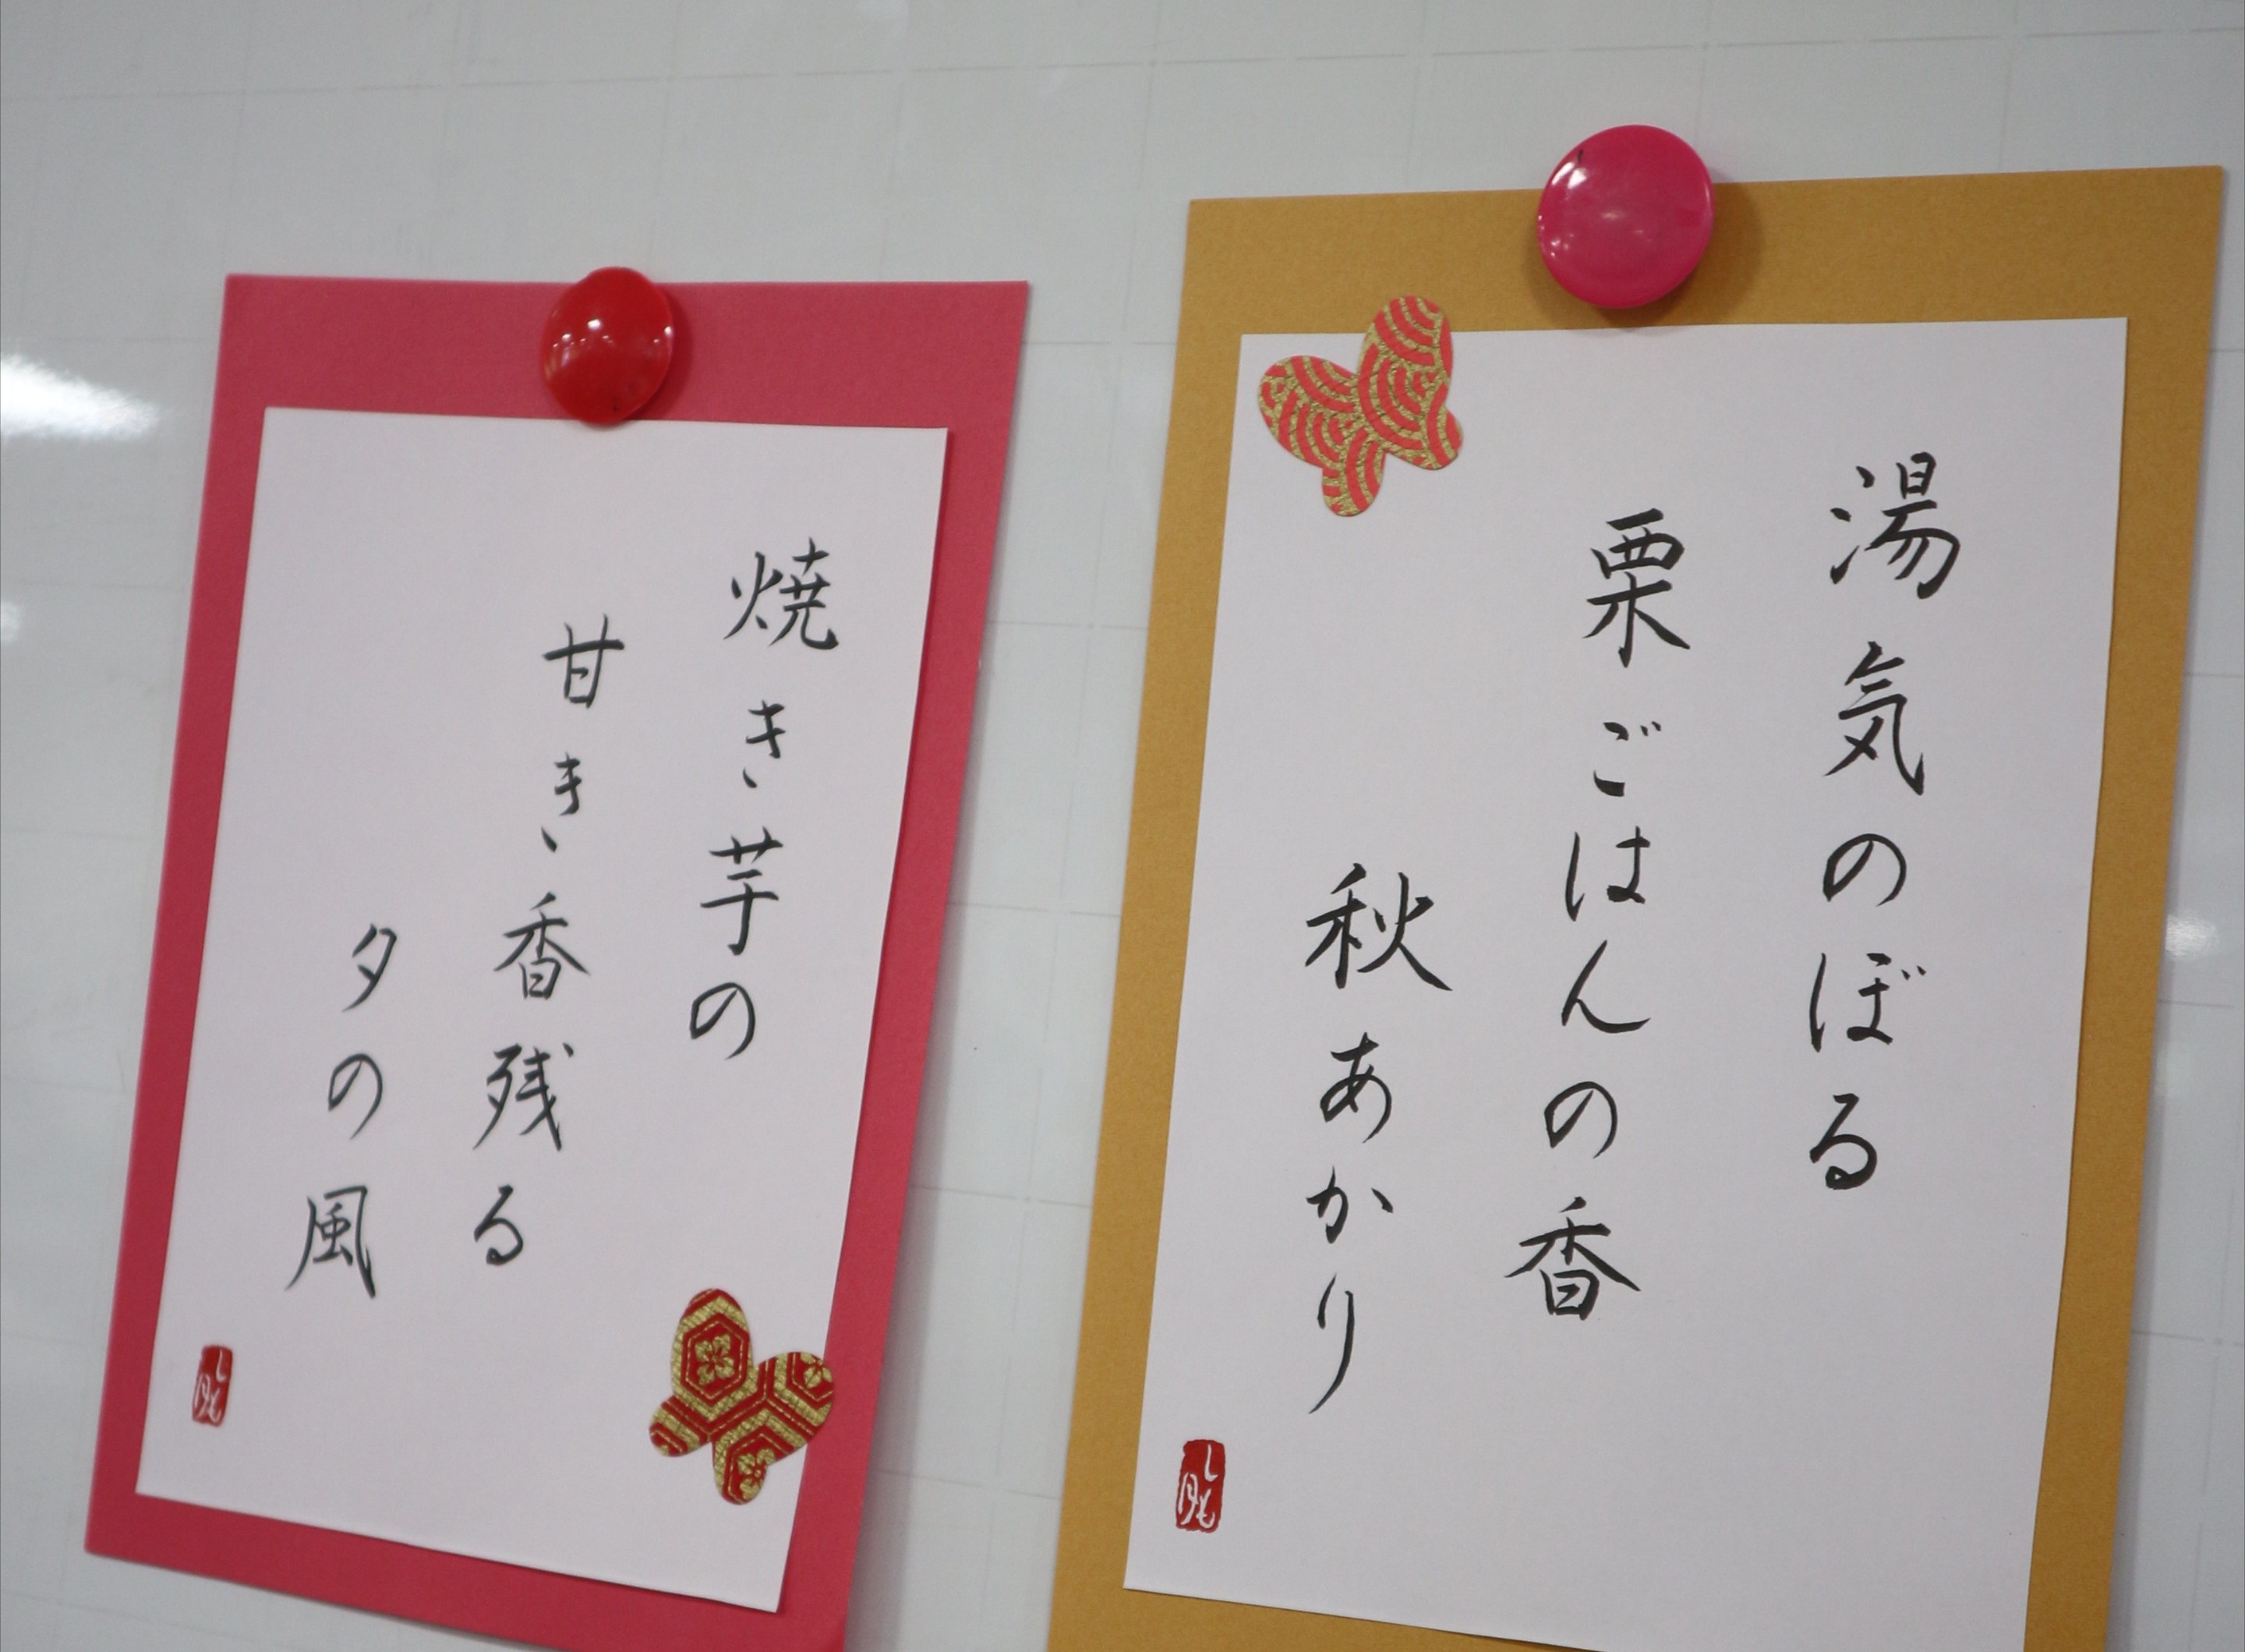 湯気のぼる
栗ごはんの香
秋あかり
焼き芋の
甘き香残る
夕の風